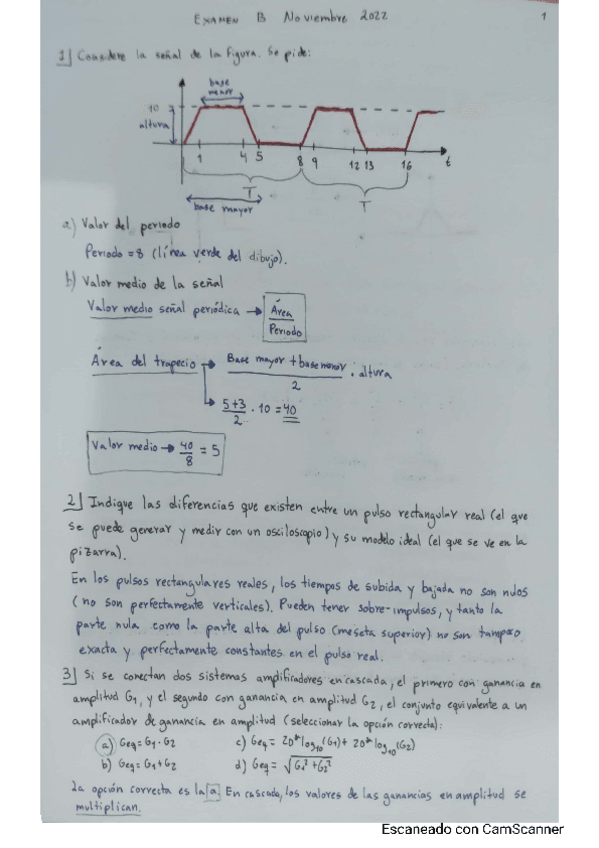 EXAMEN B Noviembre 2022
1
1] Considere la señal de la figura. Se pide:
base menor
10
altura
1 4 5 8 9 12 13 16 t
T T
base mayor
a) Valor del periodo
Periodo = 8 (línea verde del dibujo).
b) Valor medio de la señal
Valor medio señal periódica → Área
Periodo
Área del trapecio → Base mayor + base menor · altura
2
→ 5+3 · 10 = 40
2
Valor medio → 40/8 = 5
2] Indique las diferencias que existen entre un pulso rectangular real (el que
se puede generar y medir con un osciloscopio) y su modelo ideal (el que se ve en la
pizarra).
En los pulsos rectangulares reales, los tiempos de subida y bajada no son nulos
(no son perfectamente verticales). Pueden tener sobre-impulsos, y tanto la
parte nula como la parte alta del pulso (meseta superior) no son tampoco
exacta y perfectamente constantes en el pulso real.
3] Si se conectan dos sistemas amplificadores en cascada, el primero con ganancia en
amplitud G1, y el segundo con ganancia en amplitud G2, el conjunto equivalente a un
amplificador de ganancia en amplitud (seleccionar la opción correcta):
a) Geq = G1 · G2 c) Geq = 20*log10(G1) + 20*log10(G2)
b) Geq = G1 + G2 d) Geq = √G1² + G2²
La opción correcta es la a. En cascada, los valores de las ganancias en amplitud se
multiplican.
Escaneado con CamScanner